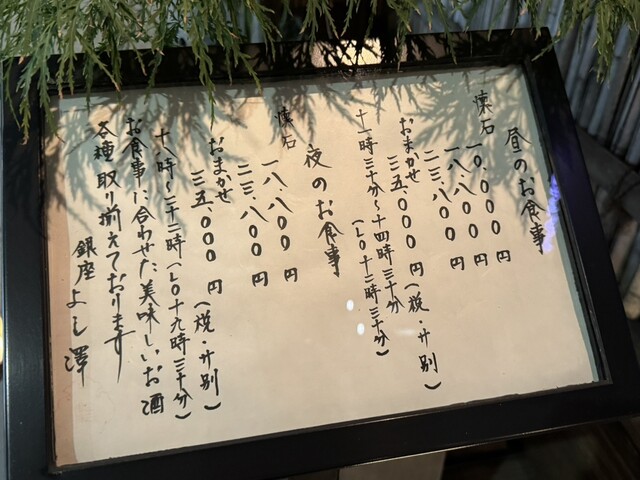 昼のお食事
懐石 一〇、〇〇〇円
一八、八〇〇円
二三、八〇〇円
おまかせ 三五、〇〇〇円(税・サ別)
十一時三十分〜十四時三十分
(LO十二時三十分)
夜のお食事
懐石 一八、八〇〇円
二三、八〇〇円
おまかせ 三五、〇〇〇円(税・サ別)
十八時〜二十二時(LO十九時三十分)
お食事に合わせた美味しいお酒
各種取り揃えております
銀座よし澤